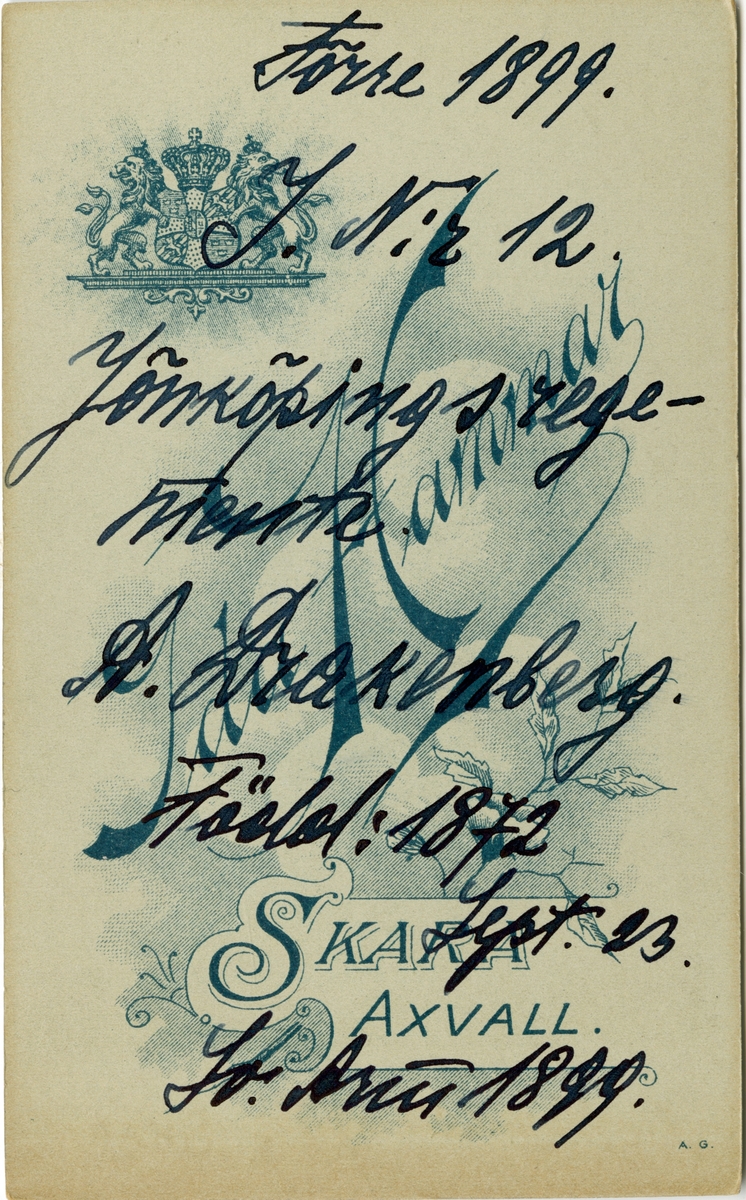 Förre 1899.
I. N:r 12.
Jönköpings rege-
mente.
A. Drakenberg.
Född: 1872
Sept. 23.
Ida Hammar
SKARA
AXVALL.
Sv. Arm 1899.
A. G.